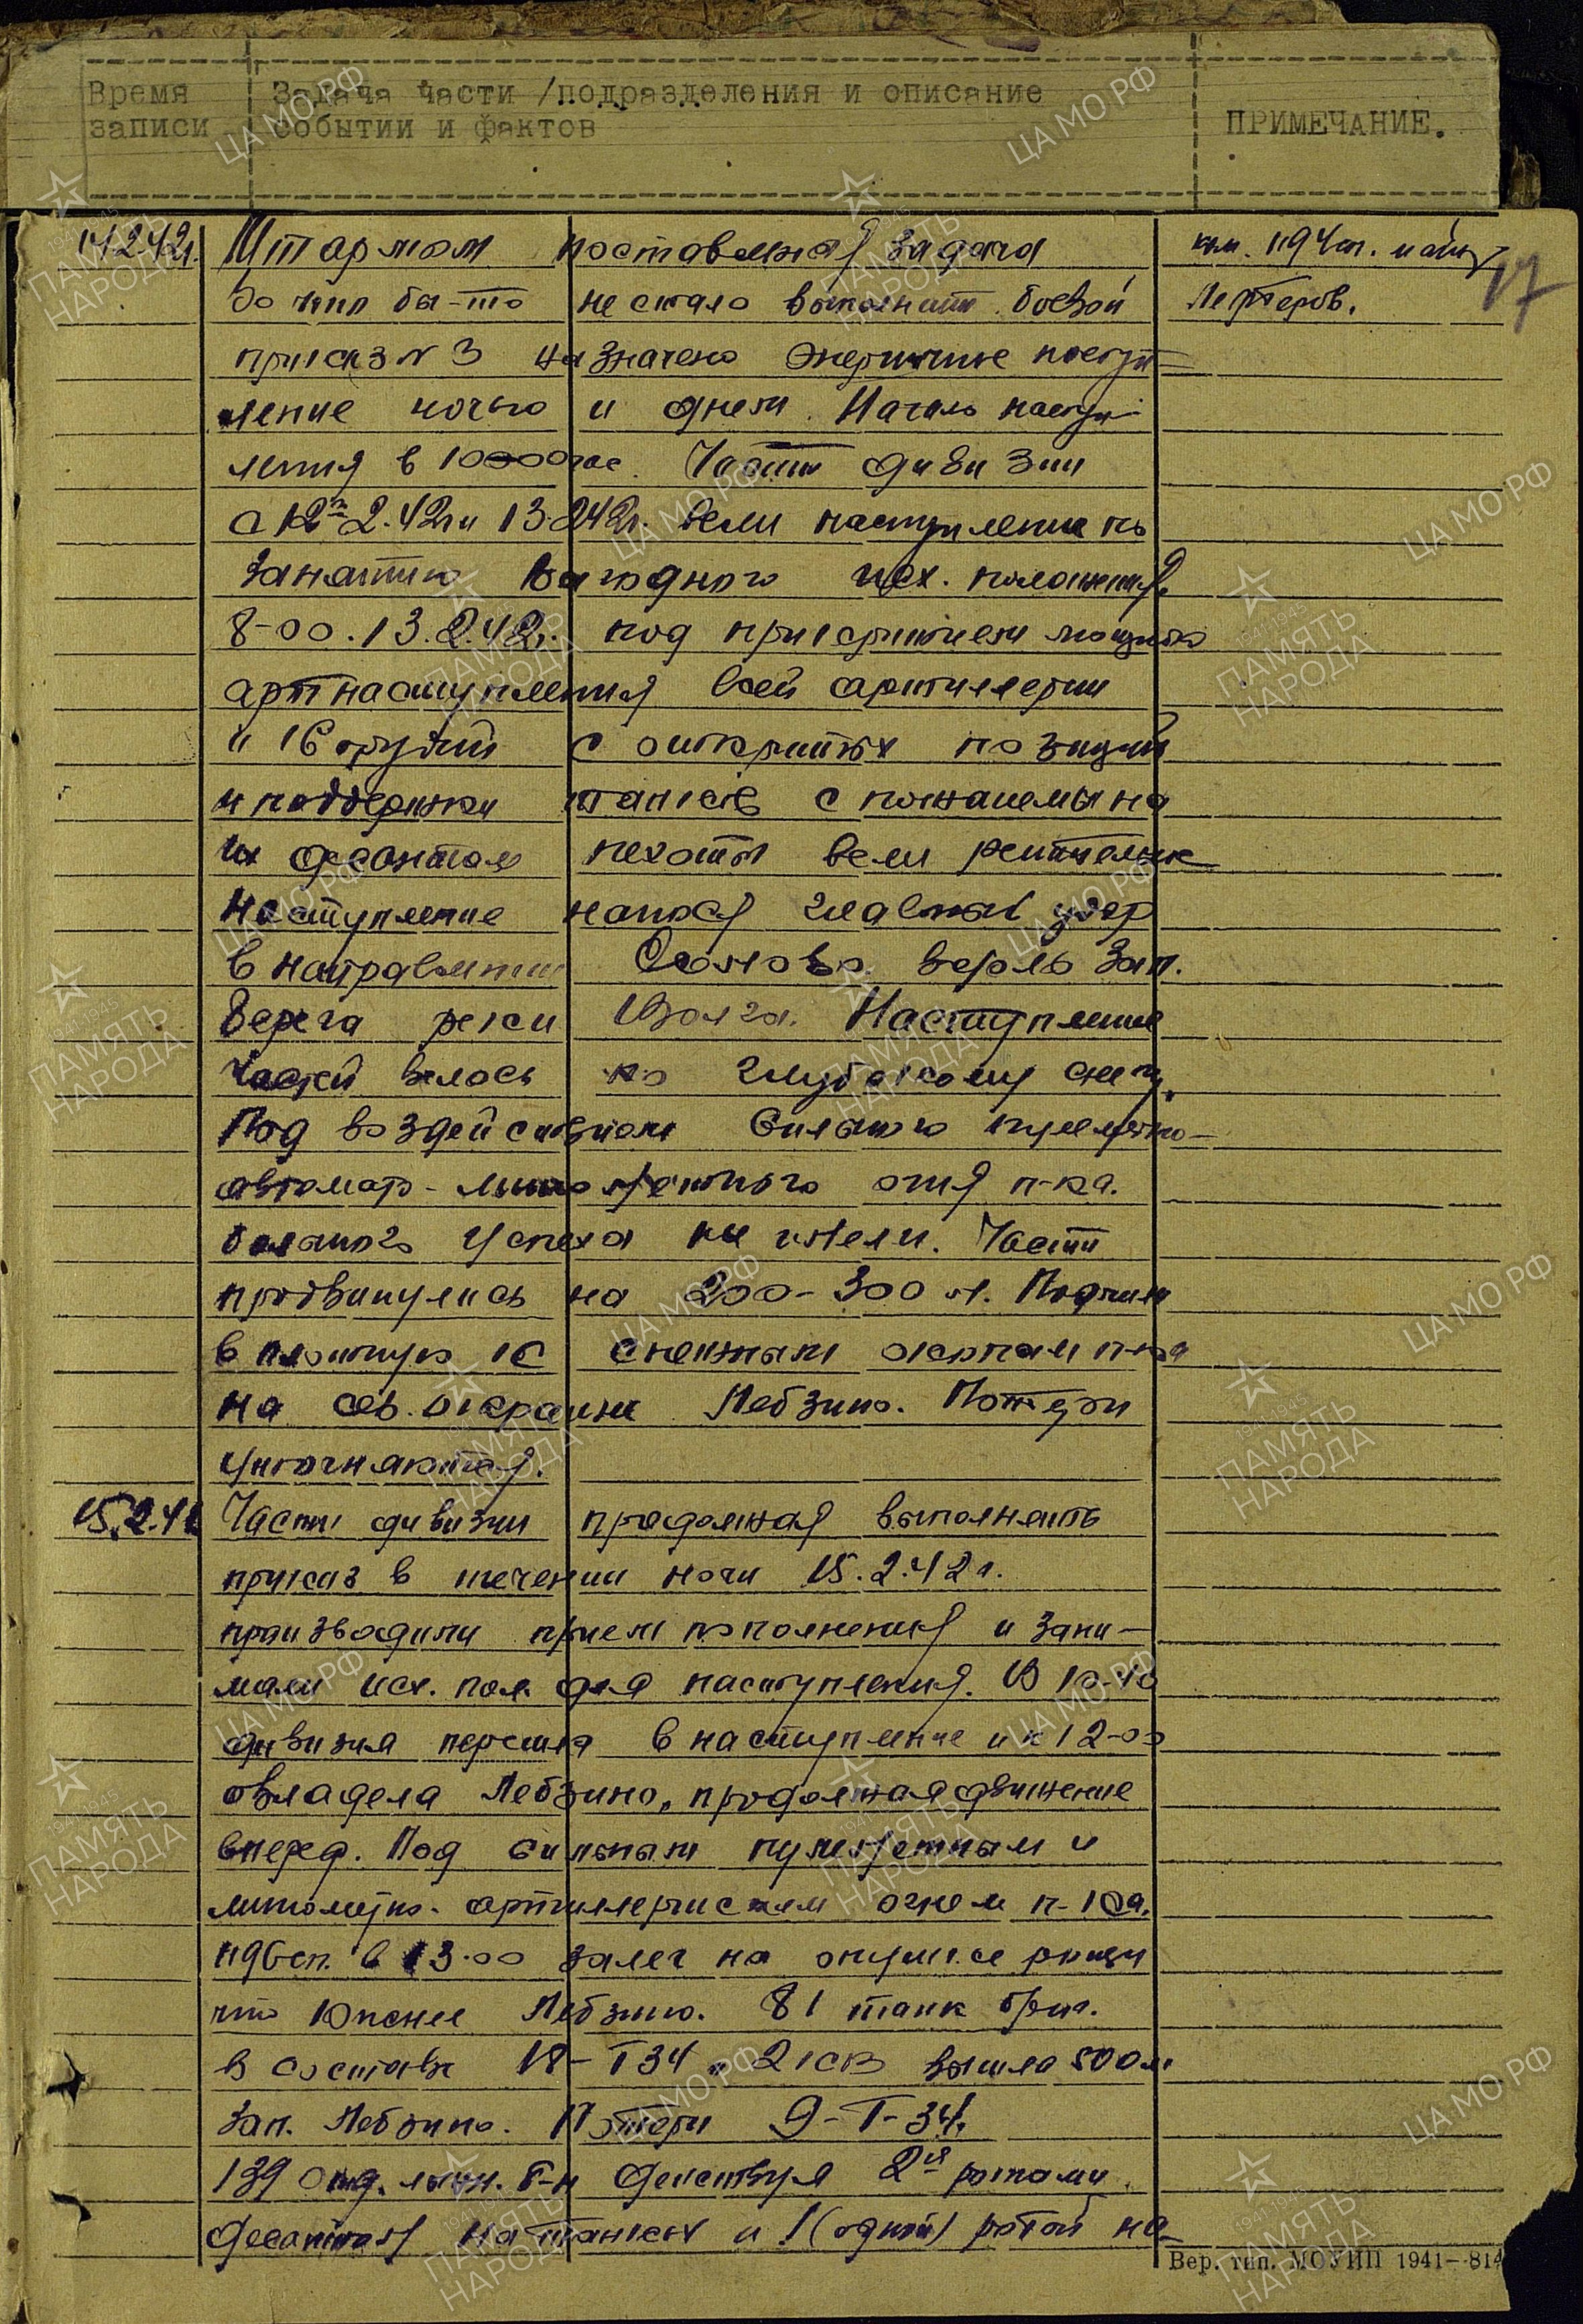 Время записи
Задача части /подразделения и описание
событии и фактов
ПРИМЕЧАНИЕ.
14.2.42г. Штармом поставленая задача
во что бы-то не стало выполнить боевой
приказ № 3 назначено энергичное насту-
пление ночью и днем. Начало насту-
пления в 10 час. Части дивизии
с 12.2.42г и 13.2.42г. вели наступление по
занятию выгодного исх. положения.
8-00. 13.2.42г. под прикрытием мощного
артнаступления всей артиллерии
и 16 орудий с открытых позиций
и поддержки танков с
их десантом пехоты вели решительное
наступление нанося главный удар
в направлении вдоль зап.
берега реки Волга. Наступление
частей велось по глубокому снегу.
Под воздействием сильного пулеметно-
автомат-минометного огня п-ка.
большого успеха не имели. Части
продвинулись на 200-300 м. Подошли
в плотную к снежным окопам п-ка
на сев. окраине Лебзино. Потери
уточняются.
ком. 1194 сп. майор
17
15.2.42 Части дивизии продолжая выполнять
приказ в течении ночи 15.2.42г.
производили прием пополнения и зани-
мали исх. пол. для наступления. В 10-40
дивизия перешла в наступление и к 12-00
овладела Лебзино, продолжая движение
вперед. Под сильным пулеметным и
минометно-артиллерийским огнем п-ка.
1196сп. в 13.00 залег на опушке рощи
что южнее Лебзино. 81 танк бриг.
в составе 18-Т34 и 2 КВ вышла 500 м.
зап. Лебзино. Потери 9-Т-34.
139 отд. лыжн. б-н действуя 2я ротами
десантом на танках и 1 (одной) ротой на-
Вер. тип. МОУНП 1941—814
ЦА МО РФ
ПАМЯТЬ НАРОДА
1941-1945